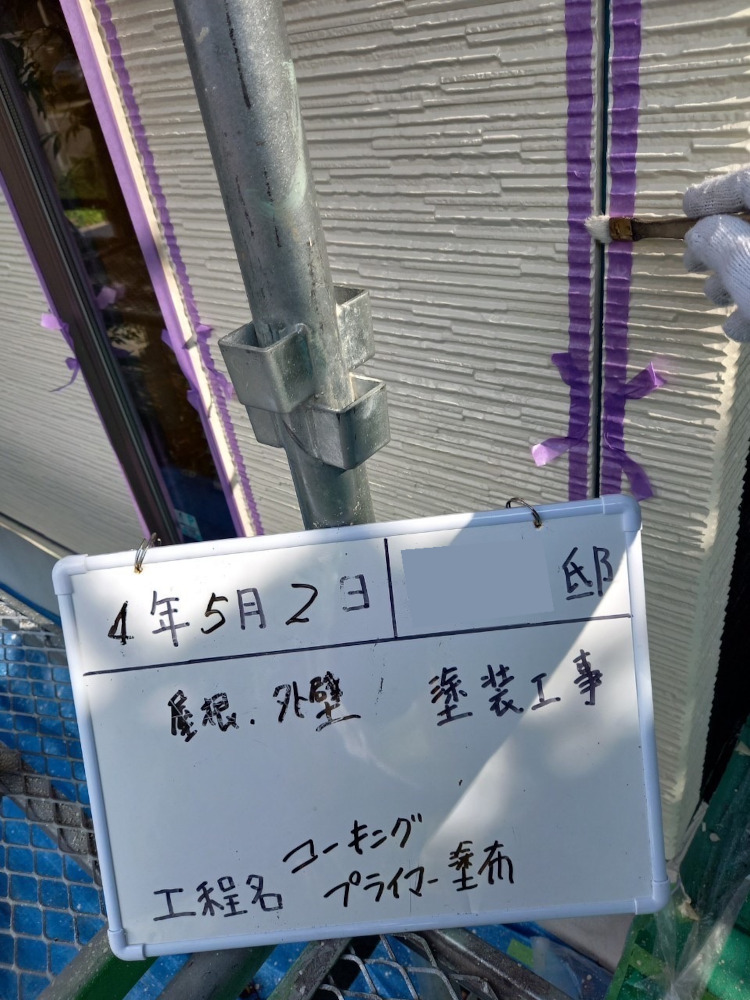 4年5月2日 邸
屋根.外壁 塗装工事
コーキング
工程名 プライマー塗布